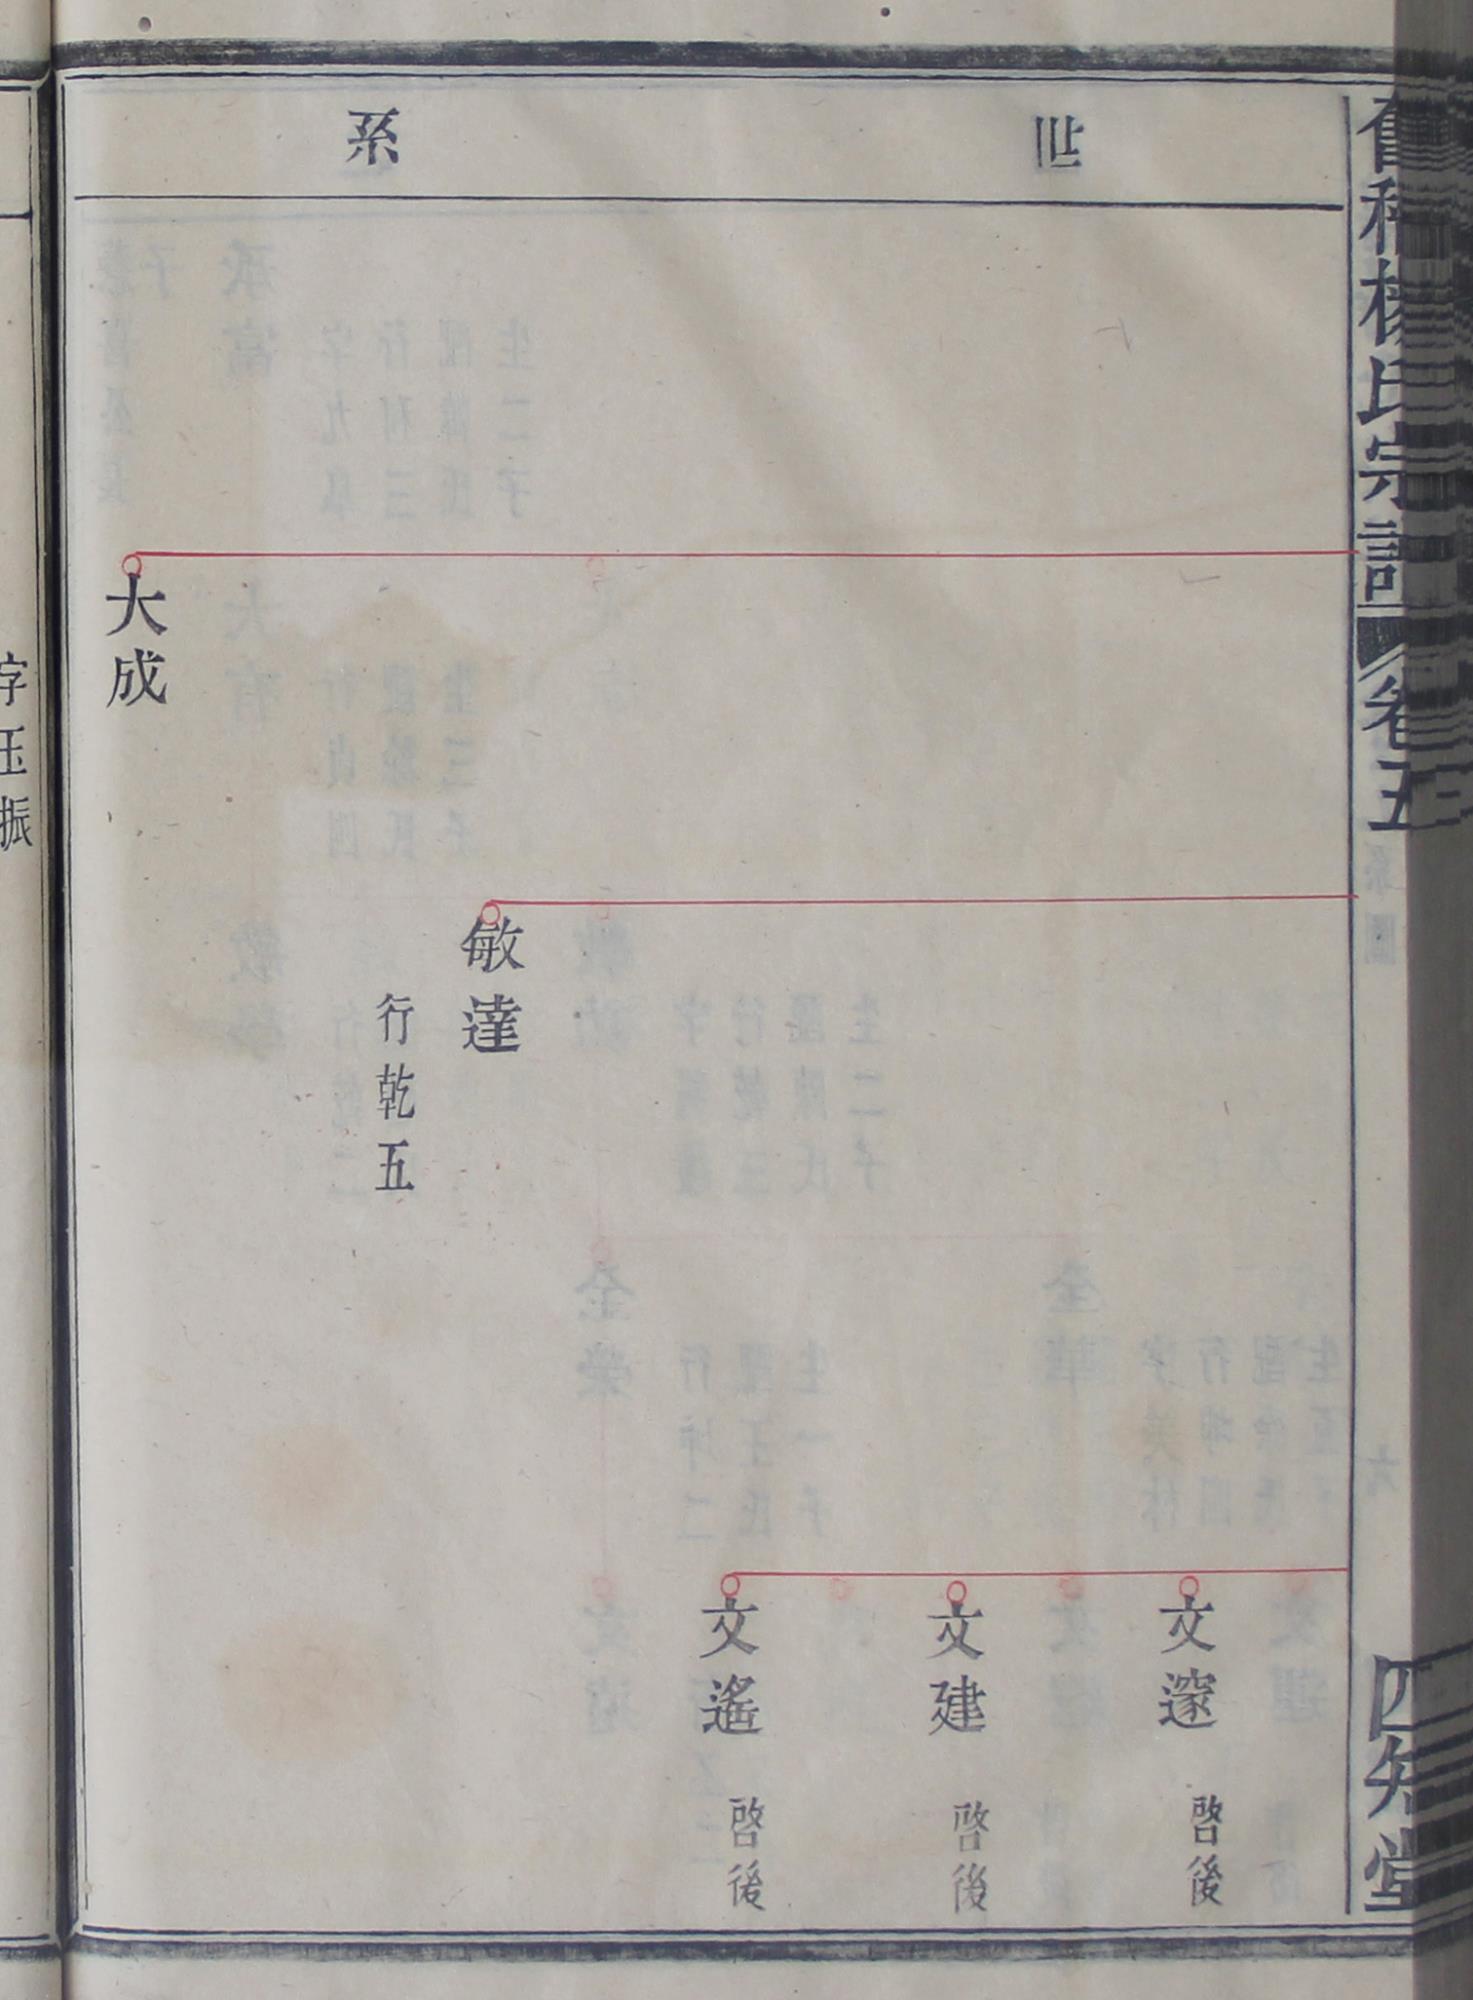 楊氏宗譜
卷五
四知堂
世
系
文邃
啓後
文建
啓後
文遙
啓後
敏達
行乾五
大成
字玉振